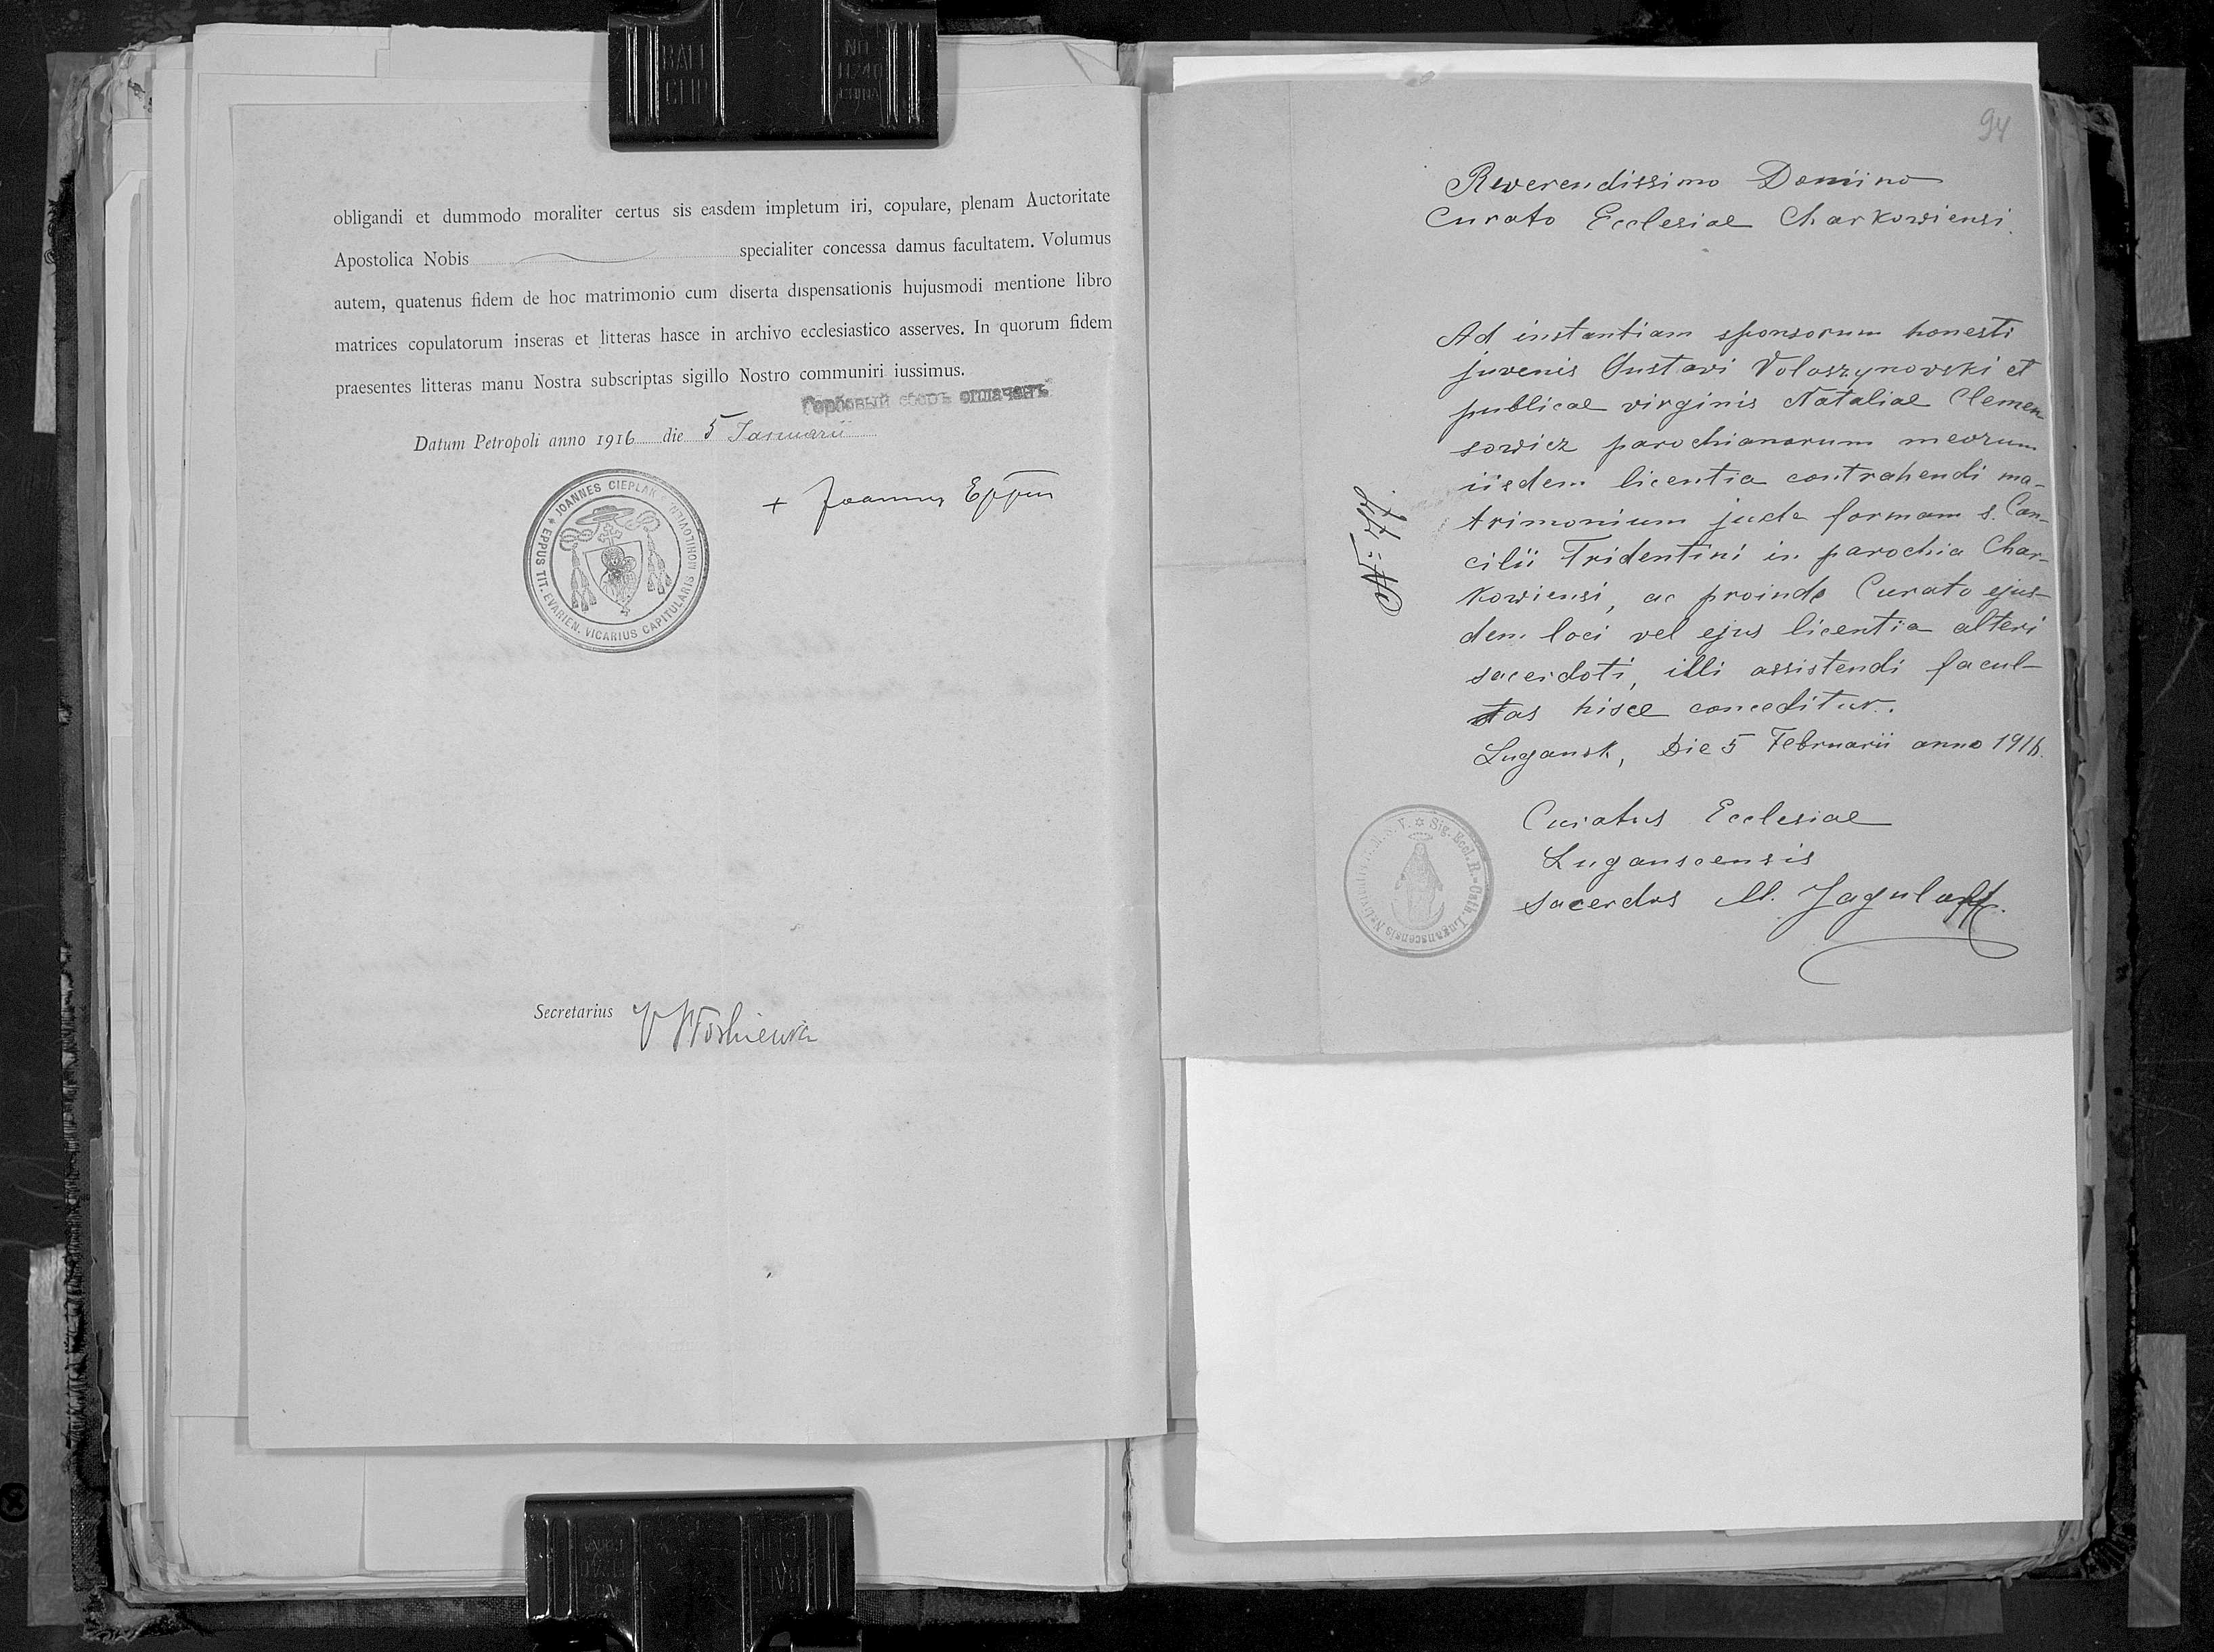 obligandi et dummodo moraliter certus sis easdem impletum iri, copulare, plenam Auctoritate
Apostolica Nobis specialiter concessa damus facultatem. Volumus
autem, quatenus fidem de hoc matrimonio cum diserta dispensationis hujusmodi mentione libro
matrices copulatorum inseras et litteras hasce in archivo ecclesiastico asserves. In quorum fidem
praesentes litteras manu Nostra subscriptas sigillo Nostro communiri iussimus.
Гербовый сборъ оплаченъ
Datum Petropoli anno 1916 die 5 Januarii
+ Joannes Eppus
IOANNES CIEPLAK EPPUS TIT. EVARIEN. VICARIUS CAPITULARIS MOHILOVIEN
Secretarius
94
Reverendissimo Domino
Curato Ecclesiae Charkowiensi.
Ad instantiam sponsorum honesti
juvenis Gustavi Voloszynowski et
publicae virginis Nataliae Clemen-
sowicz parochianorum meorum
iisdem licentia contrahendi ma-
trimonium juxta formam s. Con-
cilii Tridentini in parochia Char-
kowiensi, ac proinde Curato ejus-
dem loci vel ejus licentia alteri
sacerdoti, illi assistendi facul-
tas hisce conceditur.
Lugansk, Die 5 Februarii anno 1916.
№ 77.
Curatus Ecclesiae
Luganscensis
sacerdos M. Jaguloff.
Sig. Eccl. R.-Cath. Luganscensis Nativitatis B. M. V.
BALL
CLIP
NO.
CHINA